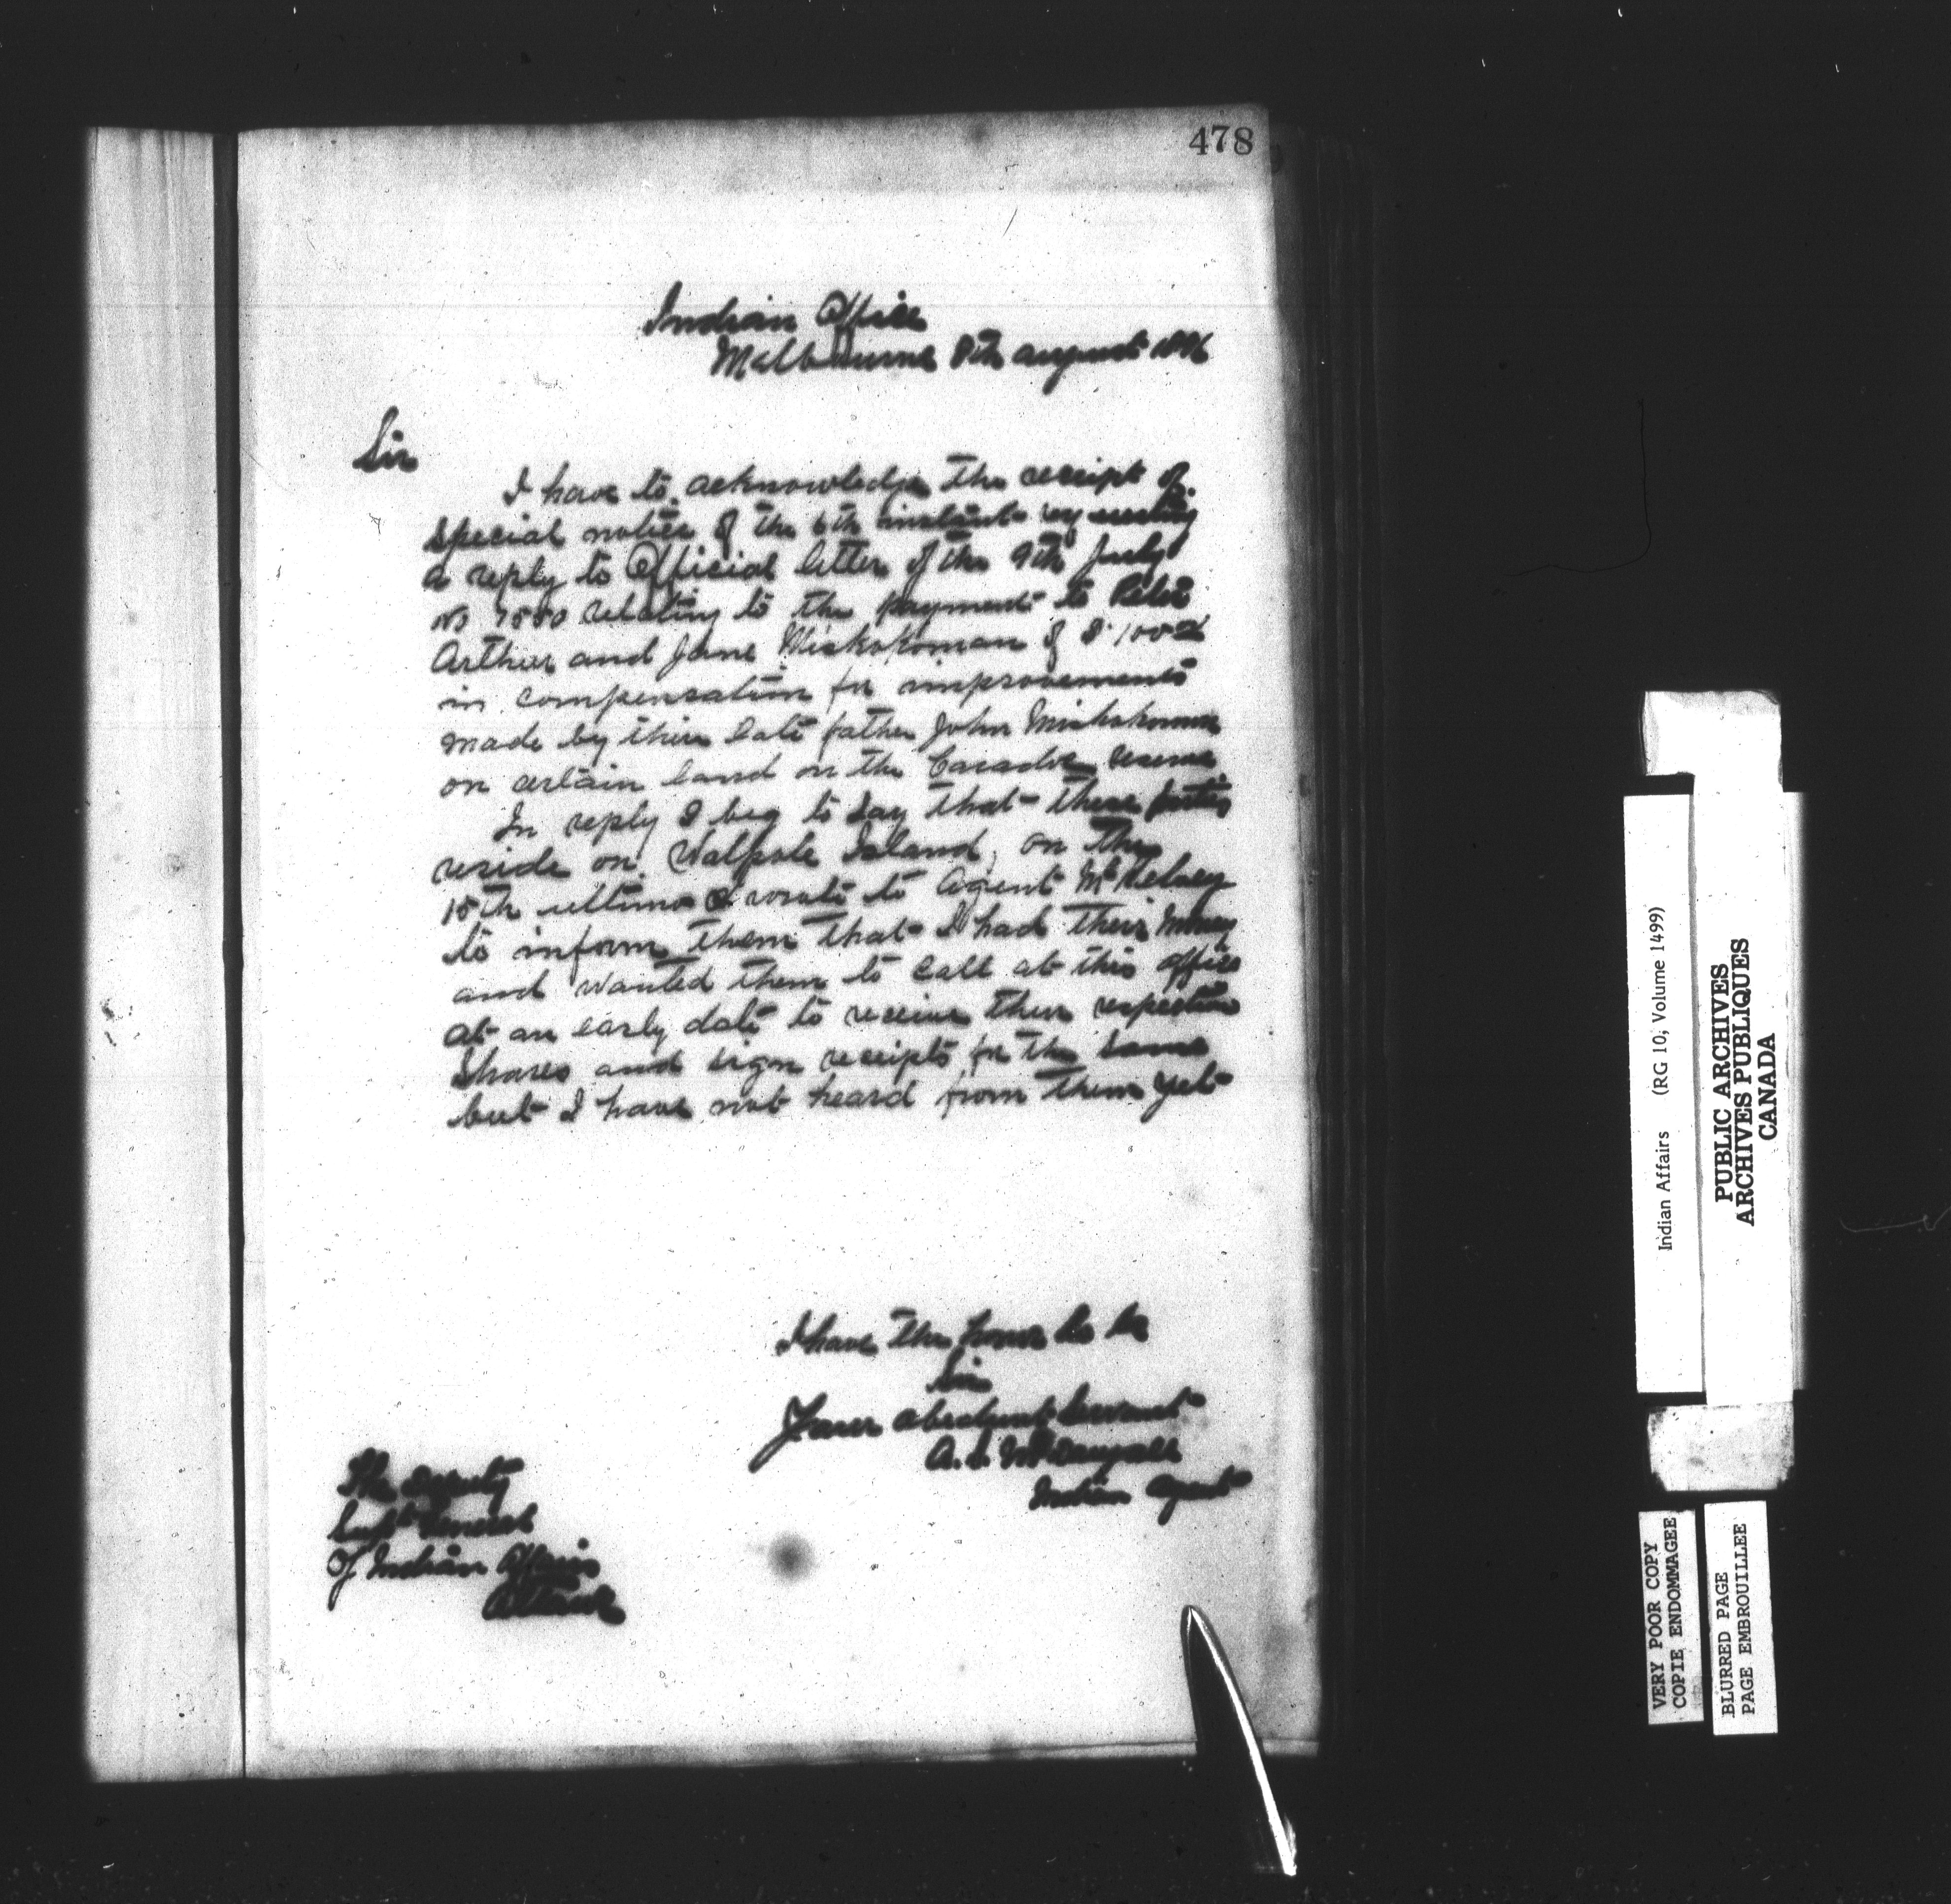 478
Indian Office
Melbourne 8th August 1896
Sir
I have to acknowledge the receipt of
special notice of the 6th instant requesting
a reply to Official letter of the 9th July
No relating to the payment to Peter
Arthur and Jane Miskokoman of $100
in compensation for improvements
made by their late father John Miskokoman
on certain land on the Caradoc reserve
In reply I beg to say that these parties
reside on Walpole Island, on the
15th ultimo I wrote to Agent McKelvey
to inform them that I had their money
and wanted them to call at this office
at an early date to receive their respective
Shares and sign receipts for the same
but I have not heard from them yet
I have the honor to be
Sir
Your obedient Servant
A. S. McDougall
Indian Agent
The Deputy
Supt General
Of Indian Affairs
Ottawa
Indian Affairs (RG 10, Volume 1499)
PUBLIC ARCHIVES
ARCHIVES PUBLIQUES
CANADA
VERY POOR COPY
COPIE ENDOMMAGEE
BLURRED PAGE
PAGE EMBROUILLEE